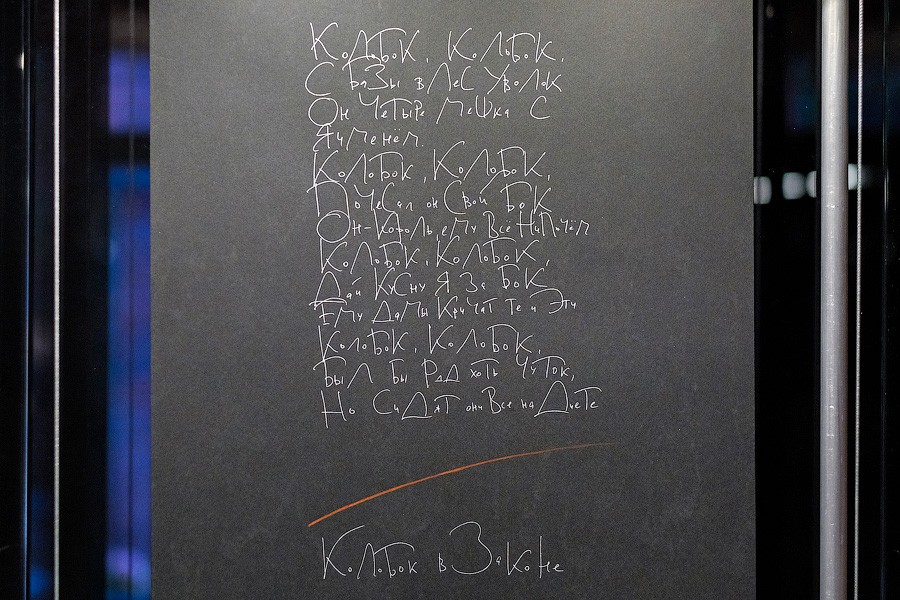 Колобок, Колобок,
С базы в лес уволок
Он четыре мешка с
Ячменём.
Колобок, Колобок,
Почесал он свой бок
Он-Король, ему всё нипочём
Колобок, Колобок,
Дай кусну я за бок
Ему дамы кричат те и эти
Колобок, Колобок,
Был бы рад хоть чуток,
Но сидят они все на диете
Колобок в Законе